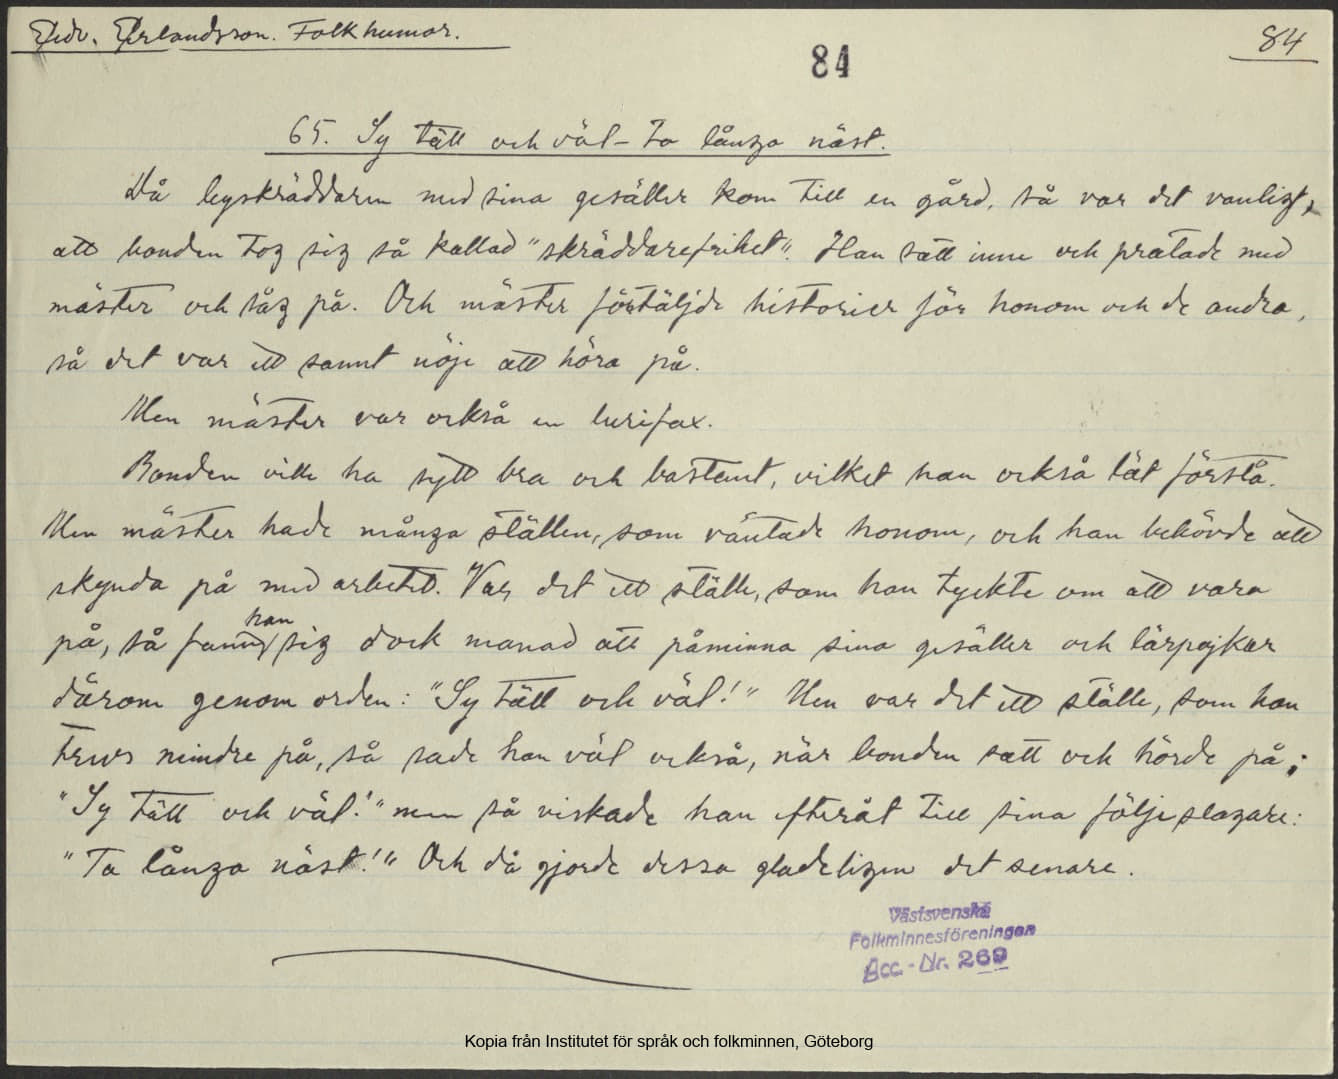 Edv. Erlandsson. Folkhumor.
84
84
65. Sy tätt och väl - Ta långa näst.
Då byskräddaren med sina gesäller kom till en gård, så var det vanligt,
att bonden tog sig så kallad "skräddarefrihet". Han satt inne och pratade med
mäster och såg på. Och mäster förtäljde historier för honom och de andra,
så det var ett sannt nöje att höra på.
Men mäster var också en lurifax.
Bonden ville ha sytt bra och bastant, vilket han också lät förstå.
Men mäster hade många ställen, som väntade honom, och han behövde att
skynda på med arbetet. Var det ett ställe, som han tyckte om att vara
på, så fann han sig dock manad att påminna sina gesäller och lärpojkar
därom genom orden: "Sy tätt och väl!" Men var det ett ställe, som han
trivs mindre på, så sade han väl också, när bonden satt och hörde på:
"Sy tätt och väl!" men så viskade han efteråt till sina följeslagare:
"Ta långa näst!" Och då gjorde dessa gladeligen det senare.
Västsvenska
Folkminnesföreningen
Acc.-Nr. 269
Kopia från Institutet för språk och folkminnen, Göteborg